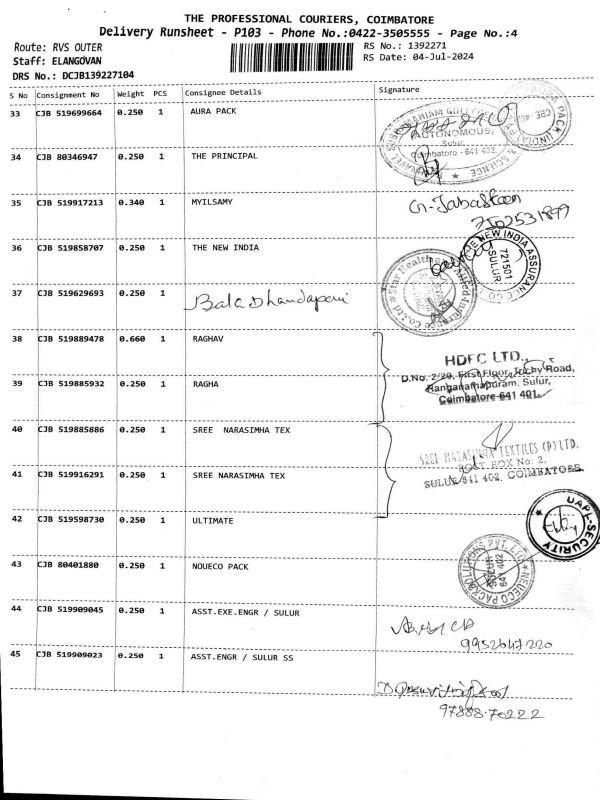 THE PROFESSIONAL COURIERS, COIMBATORE
Delivery Runsheet - P103 - Phone No.:0422-3505555 - Page No.:4
Route: RVS OUTER
RS No.: 1392271
Staff: ELANGOVAN
RS Date: 04-Jul-2024
DRS No.: DCJB139227104
S No Consignment No Weight PCS Consignee Details Signature
33 CJB 519699664 0.250 1 AURA PACK
(AUTONOMOUS)
Sulur
Coimbatore - 641 402.
AURA PACK (INDIA)
CBE
34 CJB 80346947 0.250 1 THE PRINCIPAL
35 CJB 519917213 0.340 1 MYILSAMY
G. Jabasteen
36 CJB 519858707 0.250 1 THE NEW INDIA
THE NEW INDIA ASSURANCE CO
721501
SULUR
37 CJB 519629693 0.250 1 Bala Dhandapani
Star Health and Allied Insurance Co. Ltd
38 CJB 519889478 0.660 1 RAGHAV
HDFC LTD.,
D.No. 2/20, First Floor, Trichy Road,
39 CJB 519885932 0.250 1 RAGHA
Ranganathapuram, Sulur,
Coimbatore 641 401.
40 CJB 519885886 0.250 1 SREE NARASIMHA TEX
SREE NARASIMHA TEXTILES (P) LTD.
POST BOX No: 2,
41 CJB 519916291 0.250 1 SREE NARASIMHA TEX
SULUR 641 402. COIMBATORE.
42 CJB 519598730 0.250 1 ULTIMATE
UAPL-SECURITY
43 CJB 80401880 0.250 1 NOUECO PACK
NEUECO PACK SOLUTIONS PVT. LTD
SULUR
641 402
44 CJB 519909045 0.250 1 ASST.EXE.ENGR / SULUR
9952647220
45 CJB 519909023 0.250 1 ASST.ENGR / SULUR SS
97888-70222